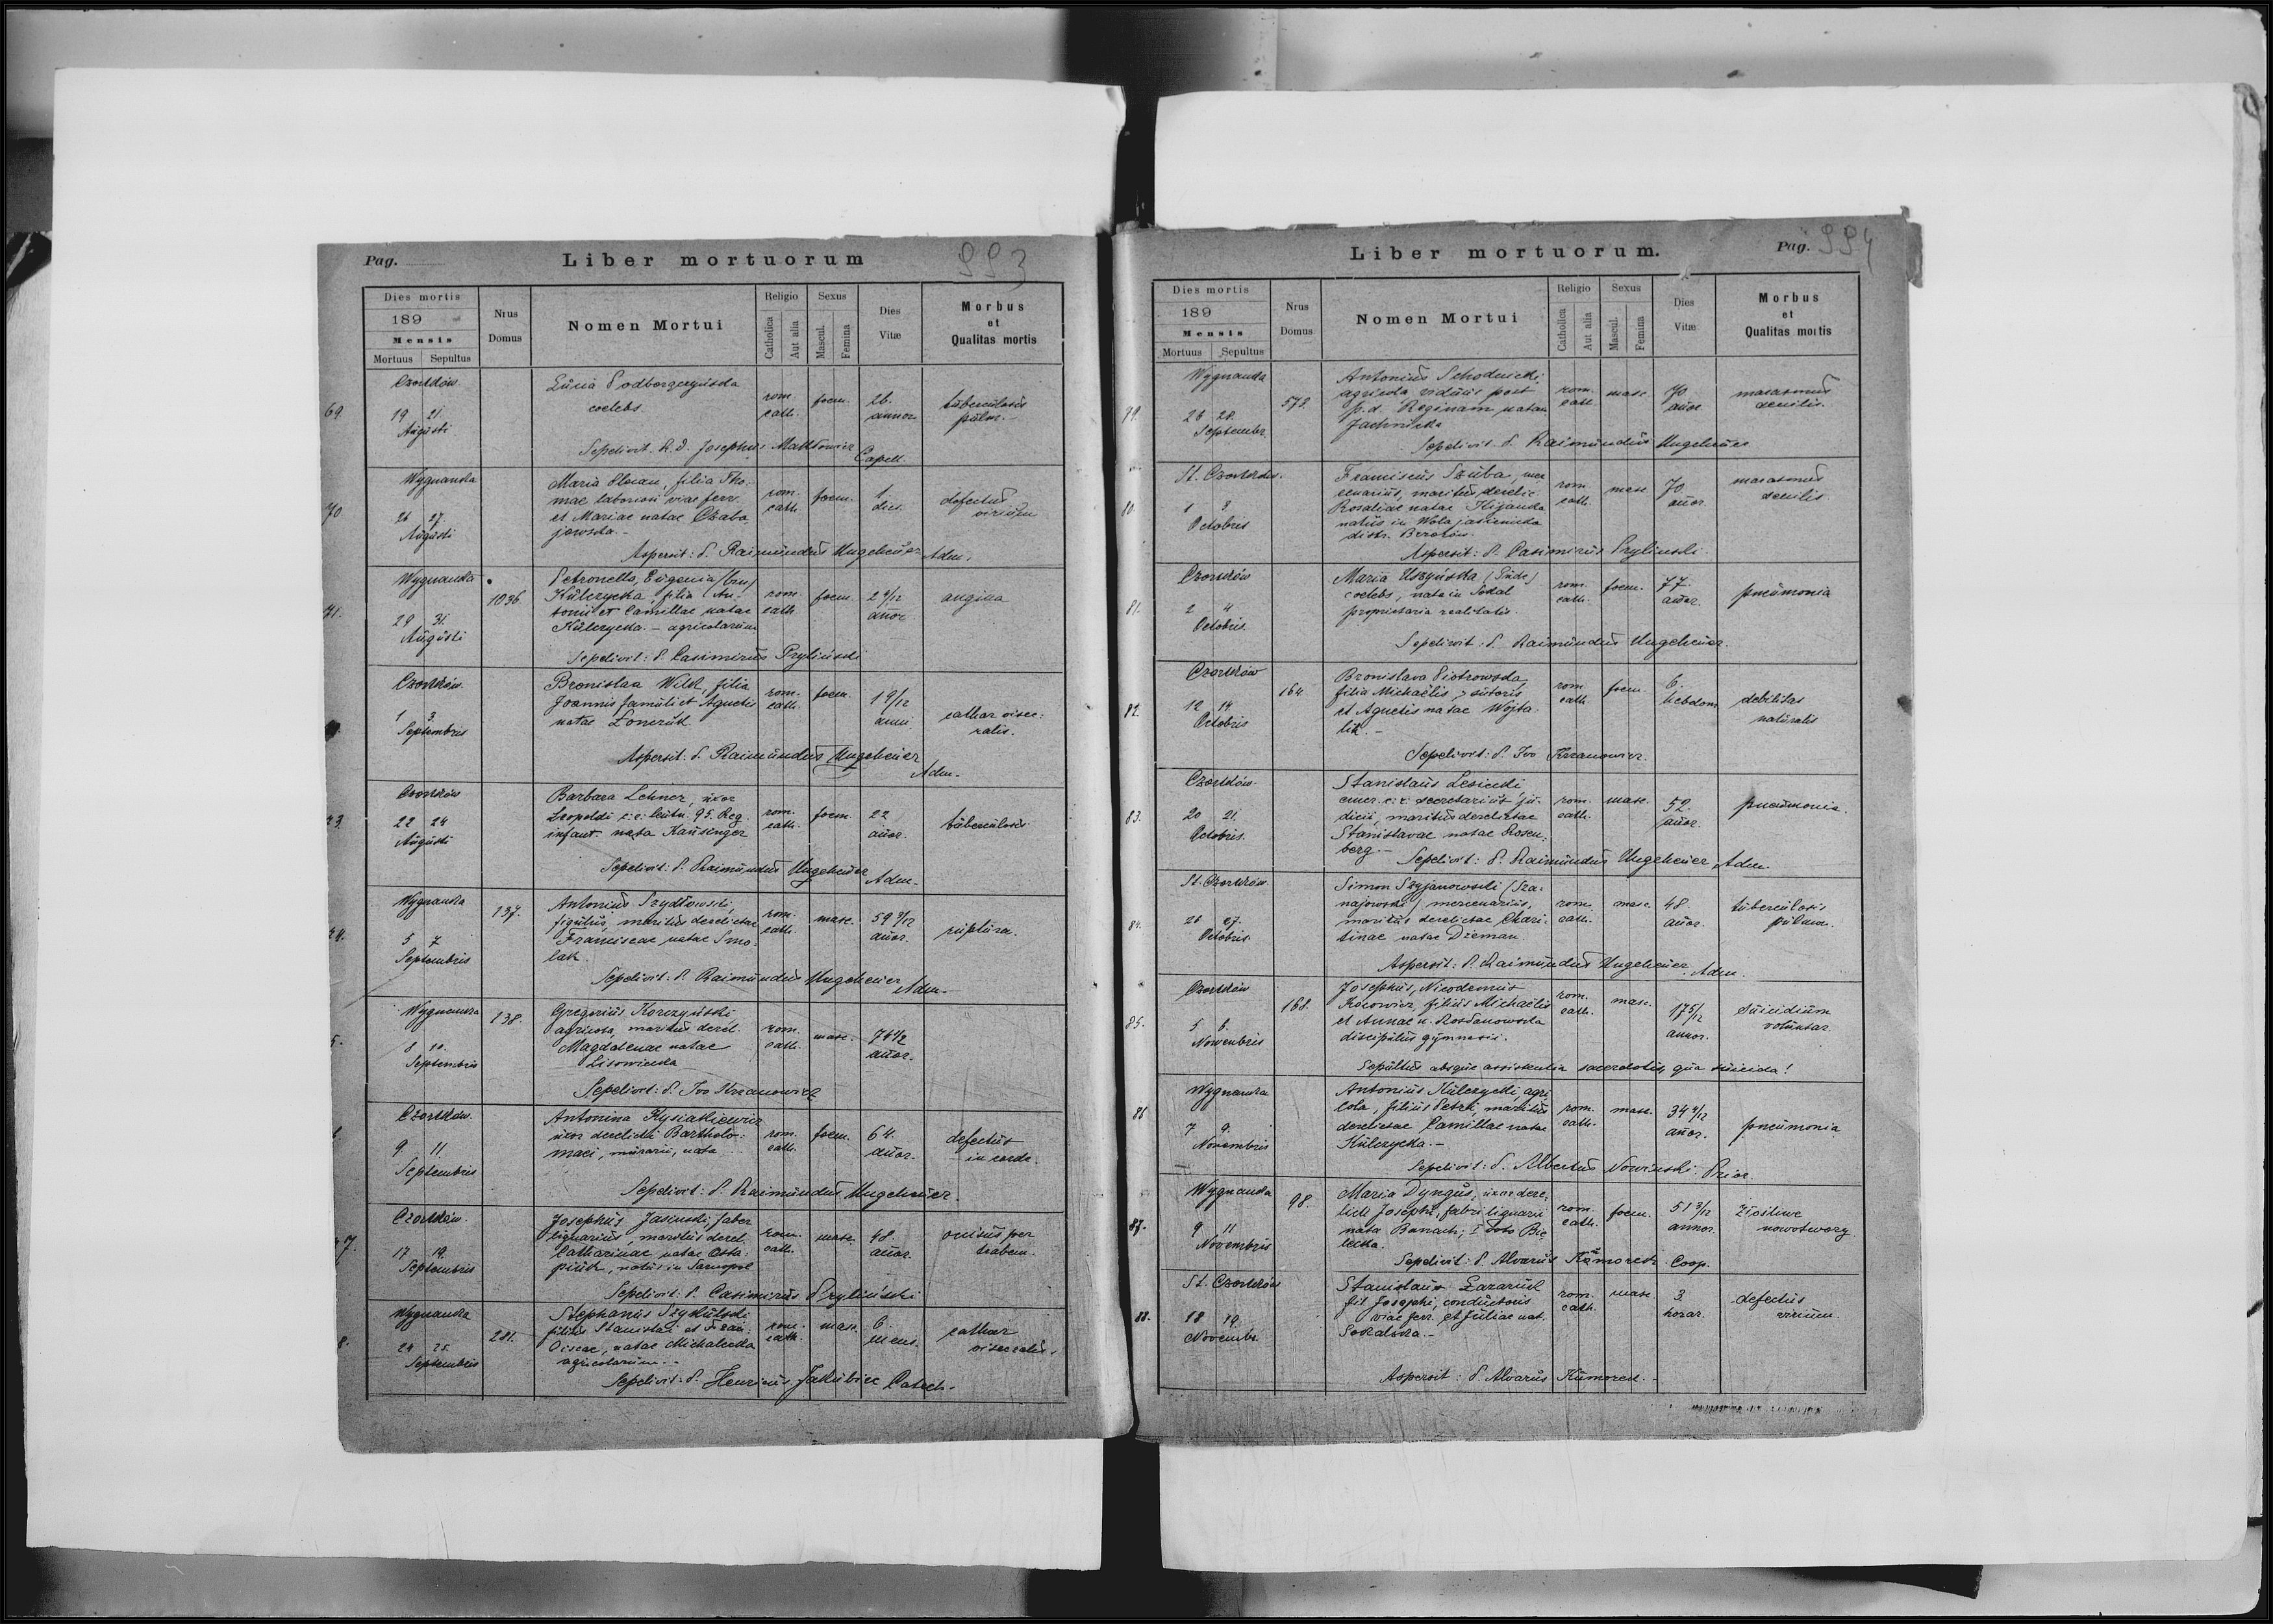 Pag.
Liber mortuorum
993
Dies mortis
189
Mensis
Mortuus Sepultus
Nrus Domus
Nomen Mortui
Religio
Catholica
Aut alia
Sexus
Mascul.
Femina
Dies Vitæ
Morbus et Qualitas mortis
69
Czortków
19 21.
Augusti
Lucia Podborączyńska
coelebs.
rom. cath.
foem.
26. annor.
tuberculosis
pulm.
Sepelivit. R. D. Josephus
Capell.
70
Wygnanka
26 27.
Augusti
Maria Słocan, filia Tho-
mae laborion viae ferr.
et Mariae natae Czaba
jowska.
rom. cath.
foem.
1. dies.
defectus
virium
Aspersit: P. Raimundus Ungeheuer Adm.
71.
Wygnanka
29 31.
Augusti
1036
Petronella, Eugenia
Kulczycka, filia An-
tonii et Camillae natae
Kulczycka. - agricolarum
rom. cath.
foem.
2 9/12
añor.
angina
Sepelivit: P. Casimirus Pryliński
Czortków.
1 3.
Septembris
Bronislaa Wilk, filia
Joannis famuli et Agnetis
natae Łonczuk
rom. cath.
foem.
1 9/12
anni.
cathar visce-
ralis.
Aspersit: P. Raimundus Ungeheuer
Adm.
73.
Czortków
22 24
Augusti
Barbara Lehner, uxor
Leopoldi c: c: leutn. 95. Reg.
infant. nata Kausinger
rom. cath.
foem.
22
añor.
tuberculosis
Sepelivit: P. Raimundus Ungeheuer
Adm.
74.
Wygnanka
5 7
Septembris
137.
Antonius Szydłowski,
figulus, maritus derelictae
Franciscae natae Smo-
lak.
rom. cath.
masc.
59 9/12
añor.
ruptura.
Sepelivit: P. Raimundus Ungeheuer
Adm.
5.
Wygnanka
8 10.
Septembris
138.
Gregorius Korczyński,
agricola, maritus derel.
Magdalenae natae
Lisowiecka
rom. cath.
masc.
74 1/2
añor.
Sepelivit: P. Ivo Krzanowicz
Czortków.
9. 11.
Septembris
Antonina Kysiatkiewicz
uxor derelicta Bartholo-
maei, murarii, nata ...
rom. cath.
foem.
64.
añor.
defectus
in corde.
Sepelivit: P. Raimundus Ungeheuer.
77.
Czortków.
17. 19.
Septembris
Josephus Jasinski, faber
lignarius, maritus derel.
Catharinae natae Osta-
piuk, natus in Tarnopol
rom. cath.
masc.
48.
añor.
occisus per
trabem.
Sepelivit: P. Casimirus Pryliński
8.
Wygnanka
24 25.
Septembris
281.
Stephanus Szykulski
filius Stanislai et Fran-
ciscae, natae Michalecka
agricolarum. -
rom. cath.
masc.
6.
mens.
cathar
visceralis.
Sepelivit: P. Henricus Jakubiec Catech.
Liber mortuorum.
Pag. 994
Dies mortis
189
Mensis
Mortuus Sepultus
Nrus Domus
Nomen Mortui
Religio
Catholica
Aut alia
Sexus
Mascul.
Femina
Dies Vitæ
Morbus et Qualitas mortis
79.
Wygnanka
26 28.
Septembr.
572.
Antonius Schodnicki,
agricola, viduus post
p. d. Reginam natam
Jachnicka
rom. cath.
masc.
70.
añor.
marasmus
senilis.
Sepelivit. P. Raimundus Ungeheuer
80.
St. Czortków.
1 3.
Octobris
Franciscus Szuba, mer
cenarius, maritus derelic.
Rosaliae natae Hyzanka
natus in Wola jasienicka
distr. Brzozów.
rom. cath.
masc.
70
añor.
marasmus
senilis.
Aspersit: P. Casimirus Pryliński.
81.
Czortków
2 4
Octobris.
Maria Uszyńska
coelebs, nata in Sokal
proprietaria realitatis.
rom. cath.
foem.
77.
añor.
pneumonia
Sepelivit: P. Raimundus Ungeheuer.
82.
Czortków
12 14
Octobris
164.
Bronislava Piotrowska,
filia Michaëlis, sutoris
et Agnetis natae Wojta-
lik. -
rom. cath.
foem.
6.
hebdom.
debilitas
naturalis
Sepelivit: P. Ivo Krzanowicz.
83.
Czortków
20 21.
Octobris.
Stanislaus Lesicki
emer. c: c: secretarius ju-
dicii, maritus derelictae
Stanislavae natae Rosen-
berg. -
rom. cath.
masc.
52.
añor.
pneumonia.
Sepelivit: P. Raimundus Ungeheuer Adm.
84.
St. Czortków
26 27.
Octobris.
Simon Szyjanowski (Sza-
najowski) mercenarius,
maritus derelictae Chari-
tinae natae Dzieman.
rom. cath.
masc.
48.
añor.
tuberculosis
pulmon.
Aspersit: P. Raimundus Ungeheuer. Adm.
85.
Czortków
5 6.
Novembris
168.
Josephus, Nicodemus
Kocowicz, filius Michaëlis
et Annae n. Rozdanowska
discipulus gymnasii.
rom. cath.
masc.
17 5/12
annor.
suicidium
voluntar.
Sepultus absque assistentia sacerdotis, qua suicida!
86
Wygnanka
7 9.
Novembris
Antonius Kulczycki, agri-
cola, filius Petri, maritus
derelictae Camillae natae
Kulczycka. -
rom. cath.
masc.
34 9/12
añor.
pneumonia
Sepelivit: P. Albertus Nowiński. Prior.
87.
Wygnanka
9 11
Novembris
98.
Maria Dyngus, uxor dere-
licti Josephi, fabri lignarii
nata Banach, I voto Bie-
lecka.
rom. cath.
foem.
51 3/12
annor.
Złośliwe
nowotwory
Sepelivit: P. Alvarus Komorek Coop.
88.
St. Czortków
18 19.
Novembr.
Stanislaus Łazaruk
fil. Josephi, conductoris
viae ferr. et Juliae nat.
Sokalska. -
rom. cath.
masc.
3.
horar.
defectus
virium.
Aspersit: P. Alvarus Kumorek.